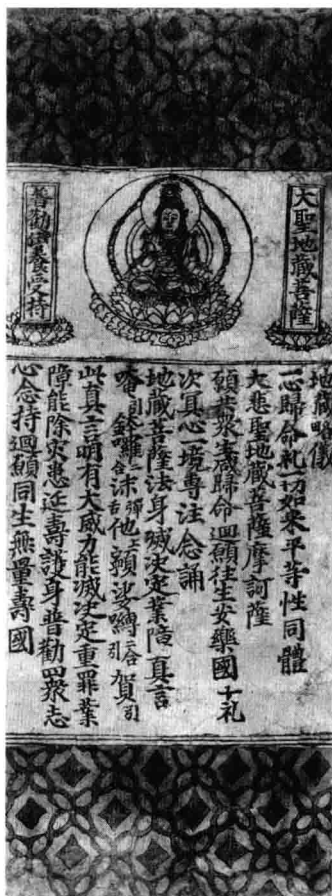 大聖地藏菩薩
普勸供養受持
地藏略儀
一心歸命礼一切如来平等性同體
大悲聖地藏菩薩摩訶薩
願共衆生咸歸命迴願往生安樂國十礼
次冥心一境專注念誦
地藏菩薩法身滅決定業障真言
唵引鉢囉二合沫彈舌他去頟娑嚩二合引賀引
此真言明有大威力能滅決定重罪業
障能除灾患延壽護身普勸四衆志
心念持迴願同生無量壽國